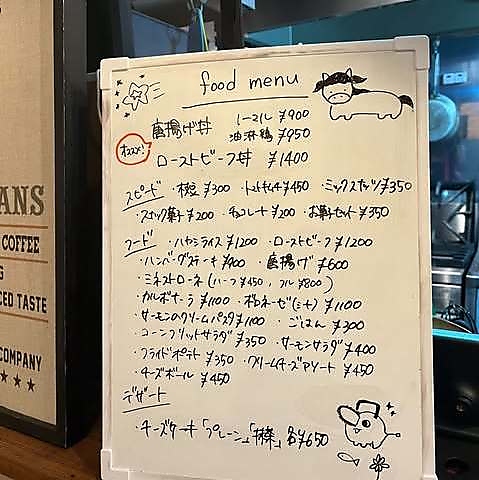 food menu
唐揚げ丼 ノーマル ¥900
油淋鶏 ¥950
オススメ!
ローストビーフ丼 ¥1400
スピード ・枝豆 ¥300 ・トマトキムチ ¥450 ・ミックスナッツ ¥350
・スナック菓子 ¥200 ・チョコレート ¥200 ・お菓子セット ¥350
フード ・ハヤシライス ¥1200 ・ローストビーフ ¥1200
・ハンバーグステーキ ¥900 ・唐揚げ ¥600
・ミネストローネ (ハーフ ¥450, フル ¥800)
・カルボナーラ ¥1100 ・ボロネーゼ(ミート) ¥1100
・サーモンのクリームパスタ ¥1100 ・ごはん ¥300
・コーンフリットサラダ ¥350 ・サーモンサラダ ¥400
・フライドポテト ¥350 ・クリームチーズアソート ¥450
・チーズボール ¥450
デザート
・チーズケーキ「プレーン」「抹茶」各¥650
ANS
COFFEE
G
CED TASTE
COMPANY